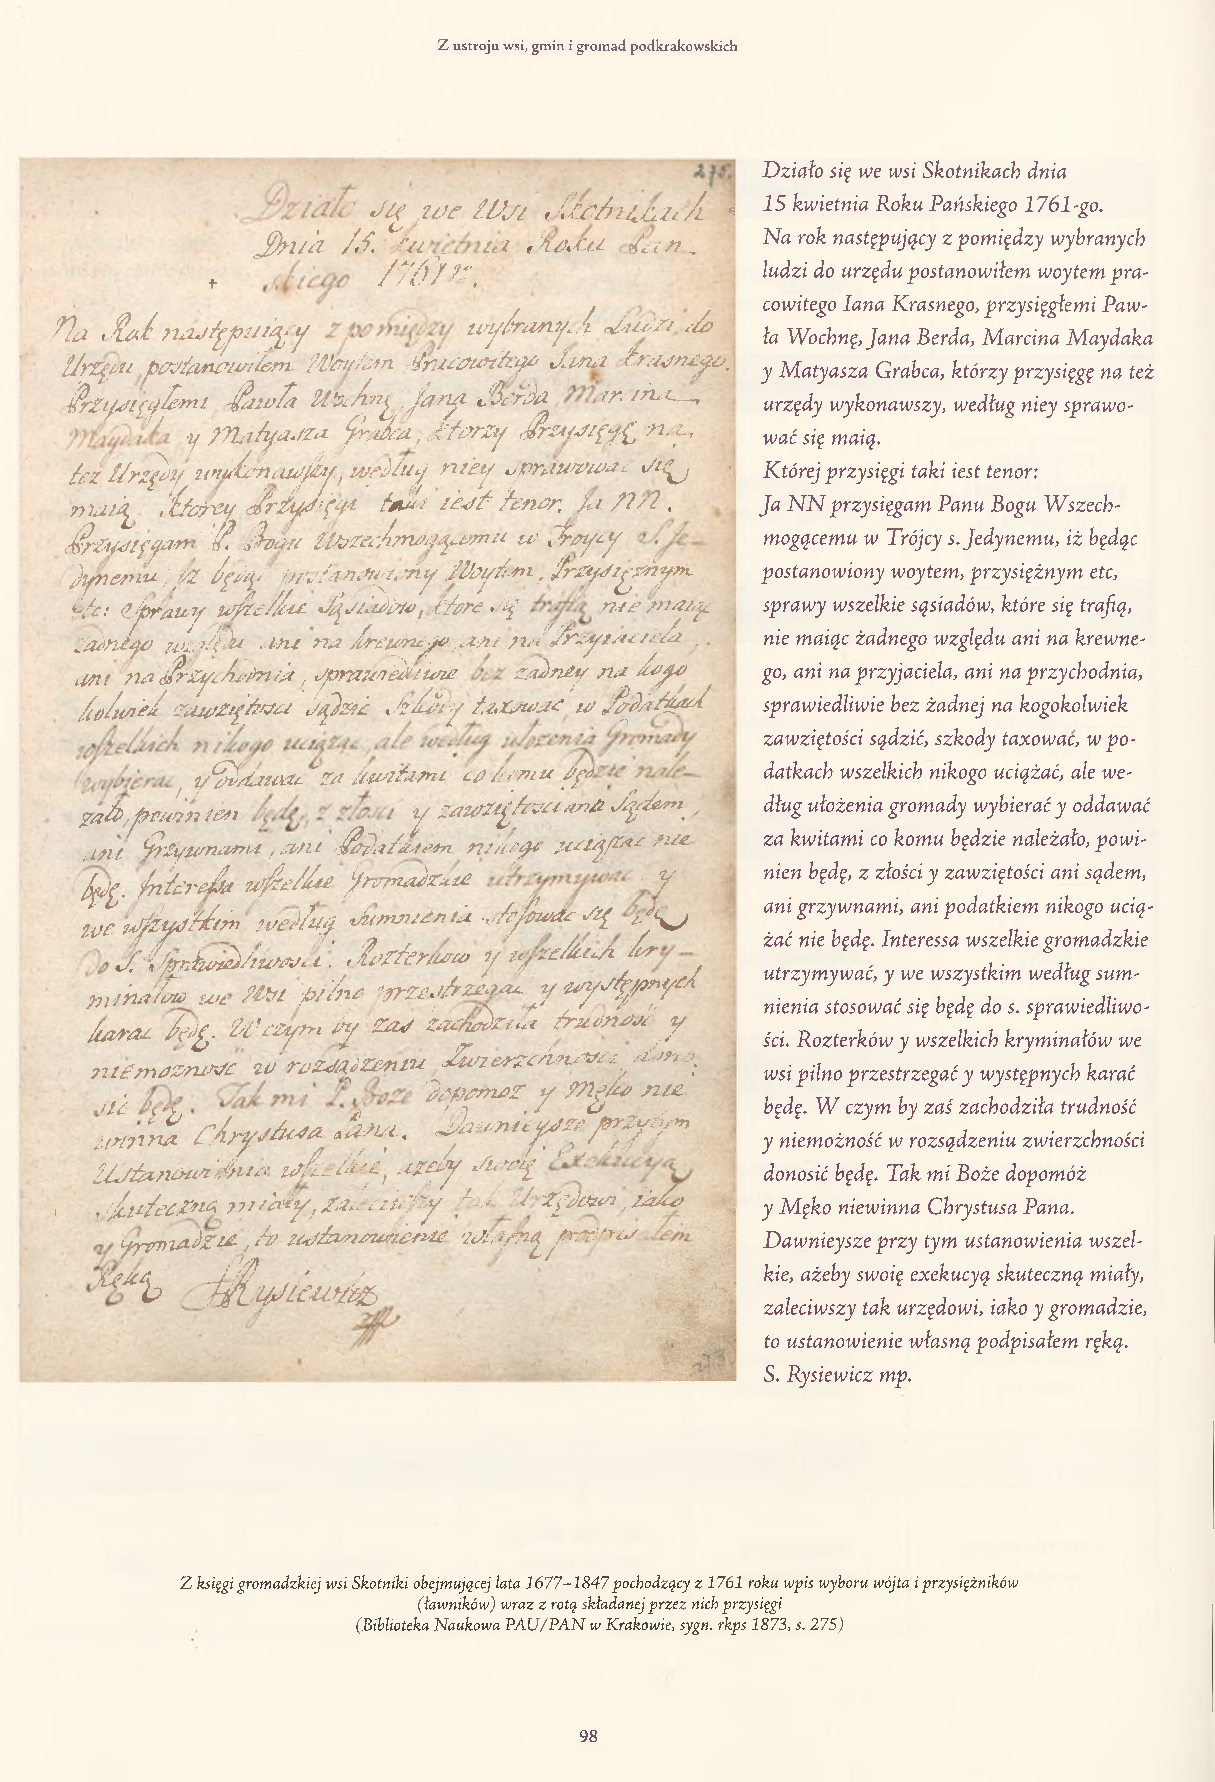 Z ustroju wsi, gmin i gromad podkrakowskich
275.
Działo się we Wsi Skotnikach
Dnia 15. kwietnia Roku Pan
skiego 1761go.
Na Rok następuiący z pomiędzy wybranych Ludzi do
Urzędu postanowiłem Woytem Pracowitego Jana Krasnego.
Przysięgłemi Pawła Wochnę, Jana Berda, Marcina
Maydaka y Matyasza Grabca, ktorzy Przysięgę na
tez Urzędy wykonawszy, według niey sprawować się
maią. Ktorey Przysięgi taki iest tenor. Ja NN.
Przysięgam P. Bogu Wszechmogącemu w Troycy S. Je-
dynemu, jz będąc postanowiony Woytem, Przysięznym
etc: Sprawy wszelkie Sąsiadow, ktore się trafią, nie maiąc
zadnego względu ani na krewnego, ani na Przyiaciela,
ani na Przychodnia, sprawiedliwie bez zadney na kogo
kolwiek zawziętosci sądzic Szkody taxować, w Podatkach
wszelkich nikogo uciązac, ale według ułozenia Gromady
wybierac, y oddawac za kwitami co komu będzie nale-
zało, powinien będę, z złosci y zawziętosci ani Sądem,
ani Grzywnami, ani Podatkiem nikogo uciązac nie
będę. Interessa wszelkie Gromadzkie utrzymywac y
we wszystkim według Sumnienia stosowac się będę
do S. Sprawiedliwosci. Rozterkow y wszelkich kry-
minałow we Wsi pilno przestrzegac y występnych
karac będę. W czym by zas zachodziła trudność y
niemoznosc w rozsądzeniu Zwierzchnosci dono
sić będę. Tak mi P. Boze dopomoz y Męko nie
winna Chrystusa Pana. Dawnieysze przytym
Ustanowienia wszelkie, azeby swoię Exekucyą
skuteczną miały, zaleciwszy tak Urzędowi, iako
y Gromadzie, to ustanowienie własną podpisałem
Ręką SRysiewicz
273
Działo się we wsi Skotnikach dnia
15 kwietnia Roku Pańskiego 1761-go.
Na rok następujący z pomiędzy wybranych
ludzi do urzędu postanowiłem woytem pra-
cowitego Iana Krasnego, przysięgłemi Paw-
ła Wochnę, Jana Berda, Marcina Maydaka
y Matyasza Grabca, którzy przysięgę na też
urzędy wykonawszy, według niey sprawo-
wać się maią.
Której przysięgi taki iest tenor:
Ja NN przysięgam Panu Bogu Wszech-
mogącemu w Trójcy s. Jedynemu, iż będąc
postanowiony woytem, przysiężnym etc,
sprawy wszelkie sąsiadów, które się trafią,
nie maiąc żadnego względu ani na krewne-
go, ani na przyjaciela, ani na przychodnia,
sprawiedliwie bez żadnej na kogokolwiek
zawziętości sądzić, szkody taxować, w po-
datkach wszelkich nikogo uciążać, ale we-
dług ułożenia gromady wybierać y oddawać
za kwitami co komu będzie należało, powi-
nien będę, z złości y zawziętości ani sądem,
ani grzywnami, ani podatkiem nikogo ucią-
żać nie będę. Interessa wszelkie gromadzkie
utrzymywać, y we wszystkim według sum-
nienia stosować się będę do s. sprawiedliwo-
ści. Rozterków y wszelkich kryminałów we
wsi pilno przestrzegać y występnych karać
będę. W czym by zaś zachodziła trudność
y niemożność w rozsądzeniu zwierzchności
donosić będę. Tak mi Boże dopomóż
y Męko niewinna Chrystusa Pana.
Dawnieysze przy tym ustanowienia wszel-
kie, ażeby swoię exekucyą skuteczną miały,
zaleciwszy tak urzędowi, iako y gromadzie,
to ustanowienie własną podpisałem ręką.
S. Rysiewicz mp.
Z księgi gromadzkiej wsi Skotniki obejmującej lata 1677–1847 pochodzący z 1761 roku wpis wyboru wójta i przysiężników
(ławników) wraz z rotą składanej przez nich przysięgi
(Biblioteka Naukowa PAU/PAN w Krakowie, sygn. rkps 1873, s. 275)
98